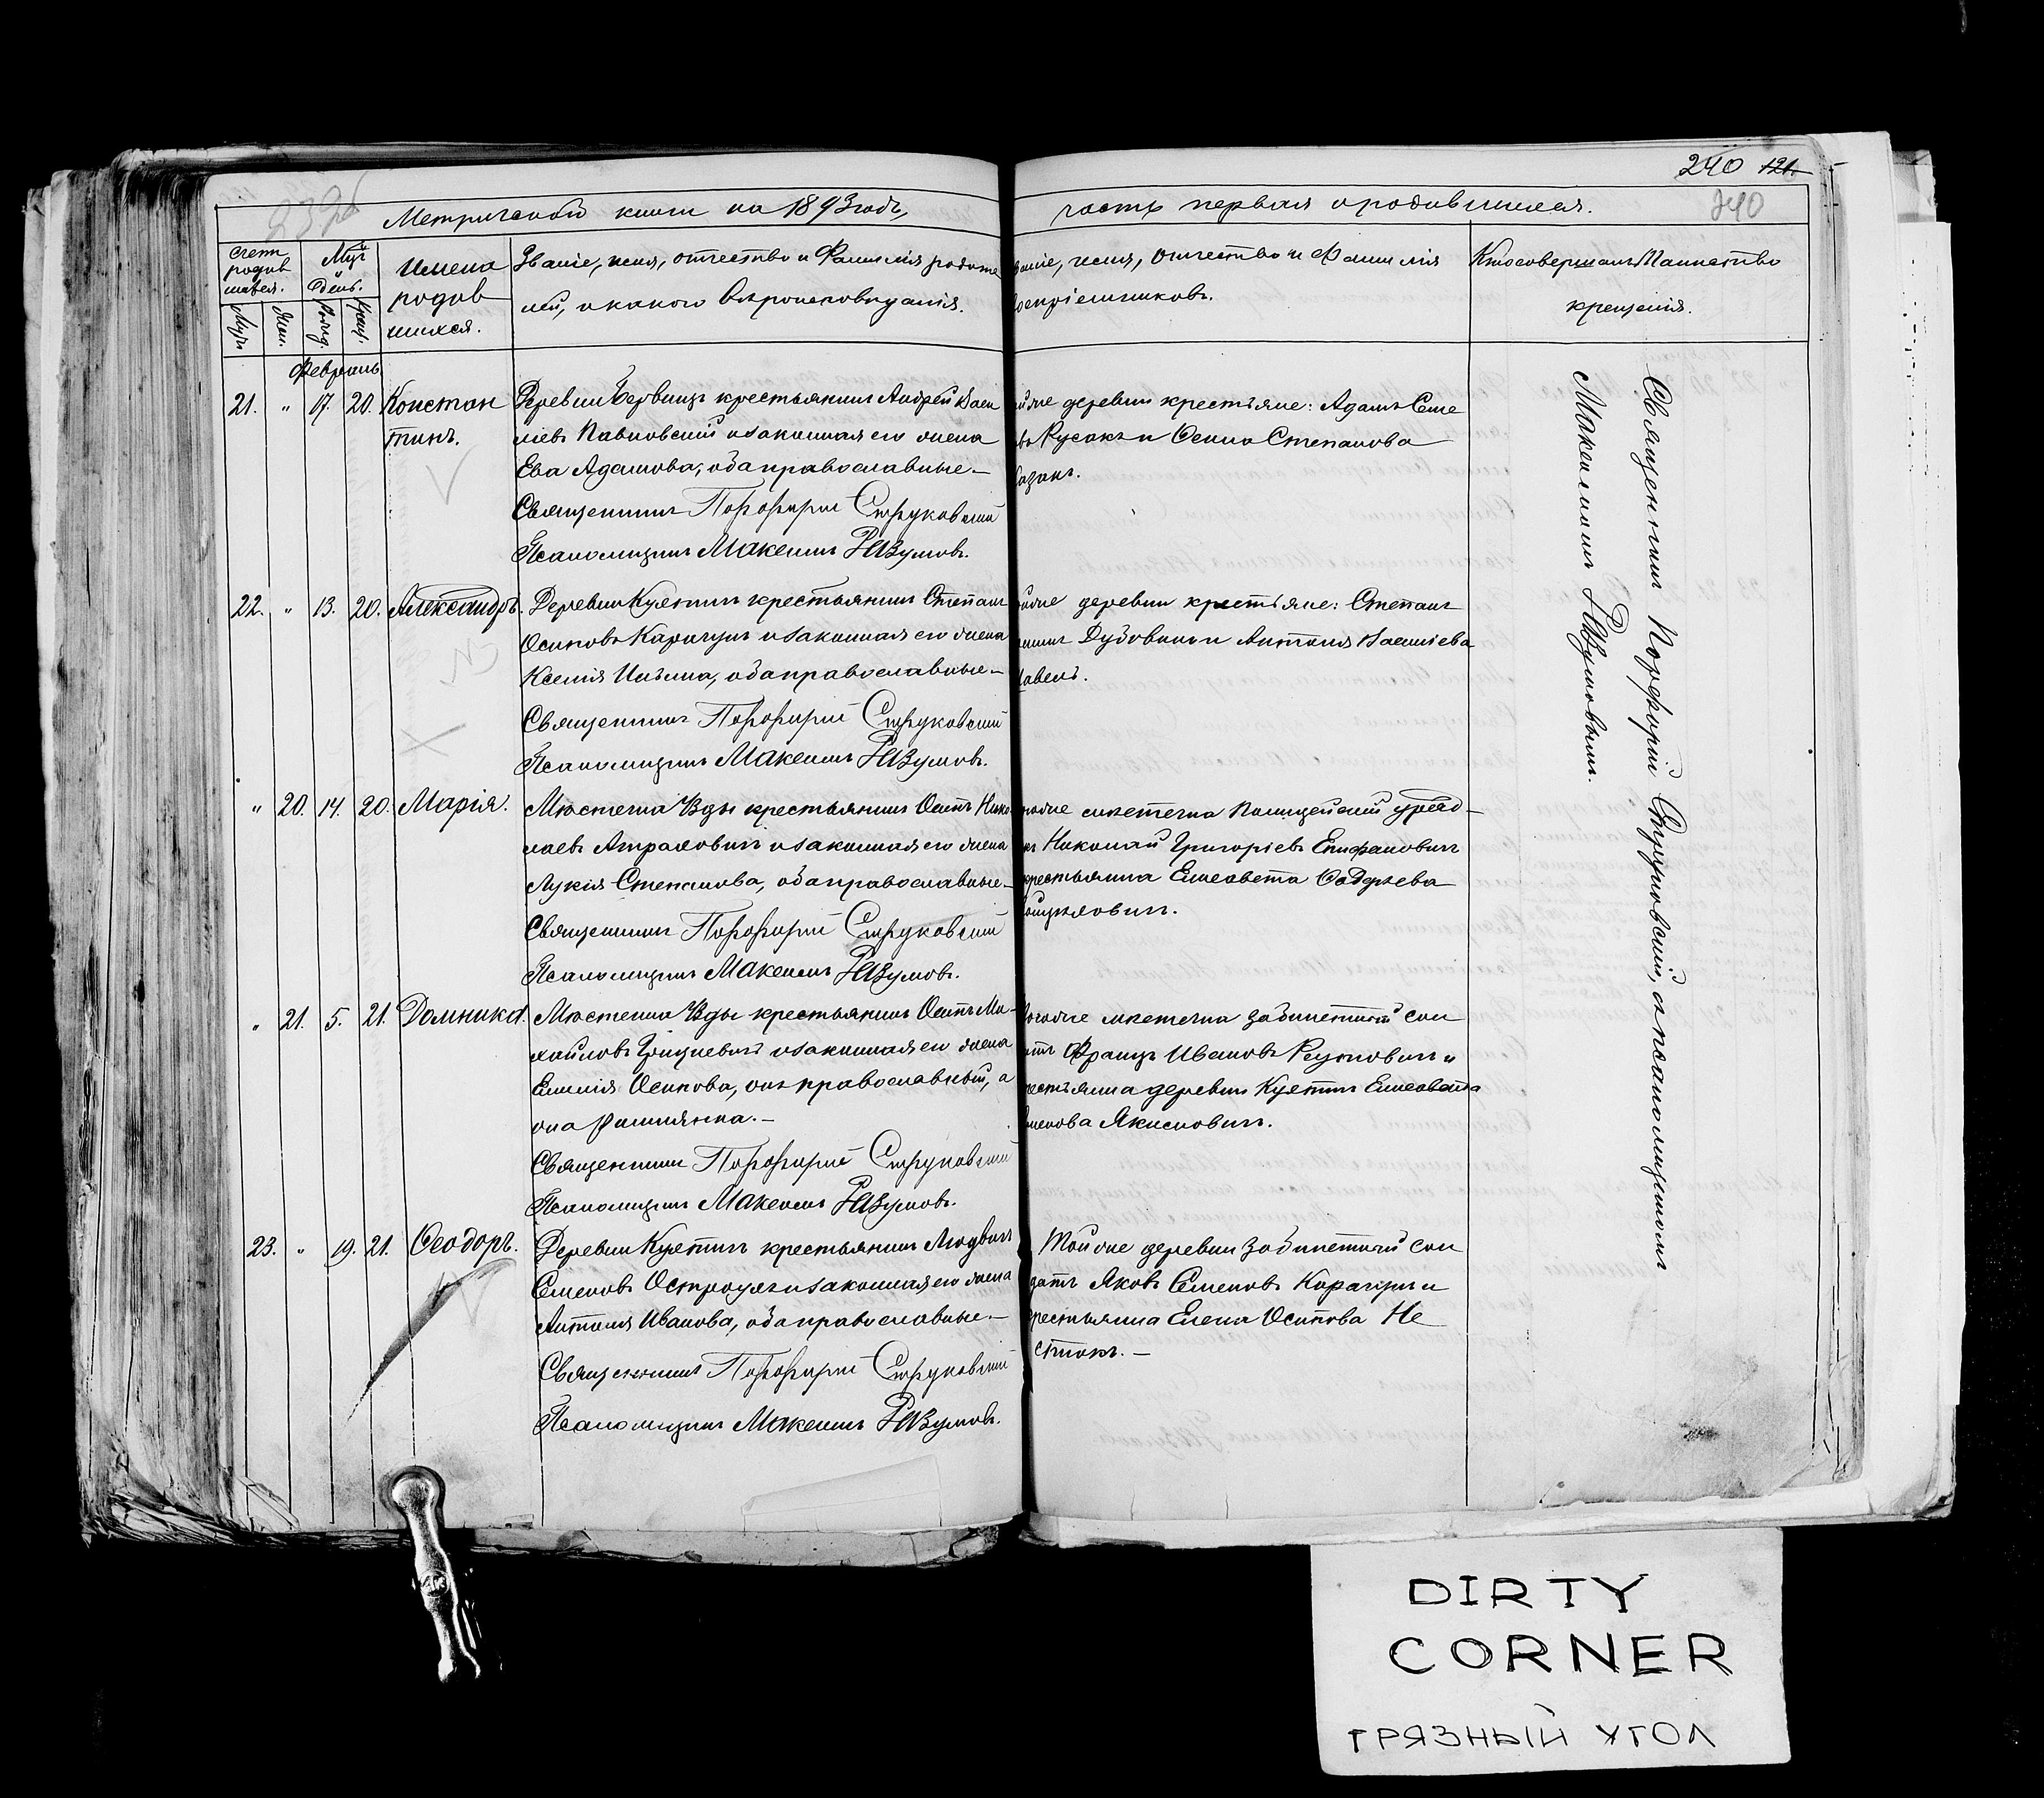 240 121.
240
Метрической книги на 1893 годъ,
часть первая о родившихся.
Счетъ родив шихся.
Муж.
Жен.
День.
Рожд.
Крещ.
Имена родив шихся.
Званіе, имя, отчество и фамилія родите
лей, и какого вѣроисповѣданія.
ваніе, имя, отчество и фамилія
воспріемниковъ.
Кто совершалъ Таинство
крещенія.
Февраль
21. " 17. 20. Констан
тинъ.
Деревни крестьянинъ Андрей Васи
ліевъ Павловскій и законная его жена
Ева Адамова, оба православные.—
Священникъ Порфирій Струковскій
Псаломщикъ Максимъ Разумовъ.
деревни крестьяне: Адамъ Семе
въ Русакъ и Степанова
22. " 13. 20. Александръ.
Деревни Куютинъ крестьянинъ Степанъ
Осиповъ Карачунъ и законная его жена
Ксенія Ильина, оба православные.—
Священникъ Порфирій Струковскій
Псаломщикъ Максимъ Разумовъ.
деревни крестьяне: Степанъ
Дубовикъ и Антонія Василіева
" 20. 14. 20. Марія.
Мѣстечка Узды крестьянинъ Осипъ Нико
лаевъ Атрахович и законная его жена
Лукія Степанова, оба православные.—
Священникъ Порфирій Струковскій
Псаломщикъ Максимъ Разумовъ.
мѣстечка Полицейскій уряд—
къ Николай Григоріевъ Епифановичъ
крестьянка Елисавета
" 21. 5. 21. Домника.
Мѣстечка Узды крестьянинъ Осипъ Ми—
хайловъ Грицкевичъ и законная его жена
Емилія Осипова, онъ православный, а
она римлянка.—
Священникъ Порфирій Струковскій
Псаломщикъ Максимъ Разумовъ.
мѣстечка Запасный сол
датъ Францъ Ивановъ и
крестьянка деревни Куютинъ Елисавета
Якимовичъ.
23. " 19. 21. Ѳеодоръ.
Деревни Куютинъ крестьянинъ Людвигъ
Семеновъ и законная его жена
Антонія Иванова, оба православные.—
Священникъ Порфирій Струковскій
Псаломщикъ Максимъ Разумовъ.
Той же деревни сол
датъ Яковъ Семеновъ Карачунъ и
крестьянка Елена Осипова Не
стюкъ.—
Священникъ Порфирій Струковскій, съ псаломщикомъ
Максимомъ Разумовымъ.
DIRTY
CORNER
ГРЯЗНЫЙ УГОЛ